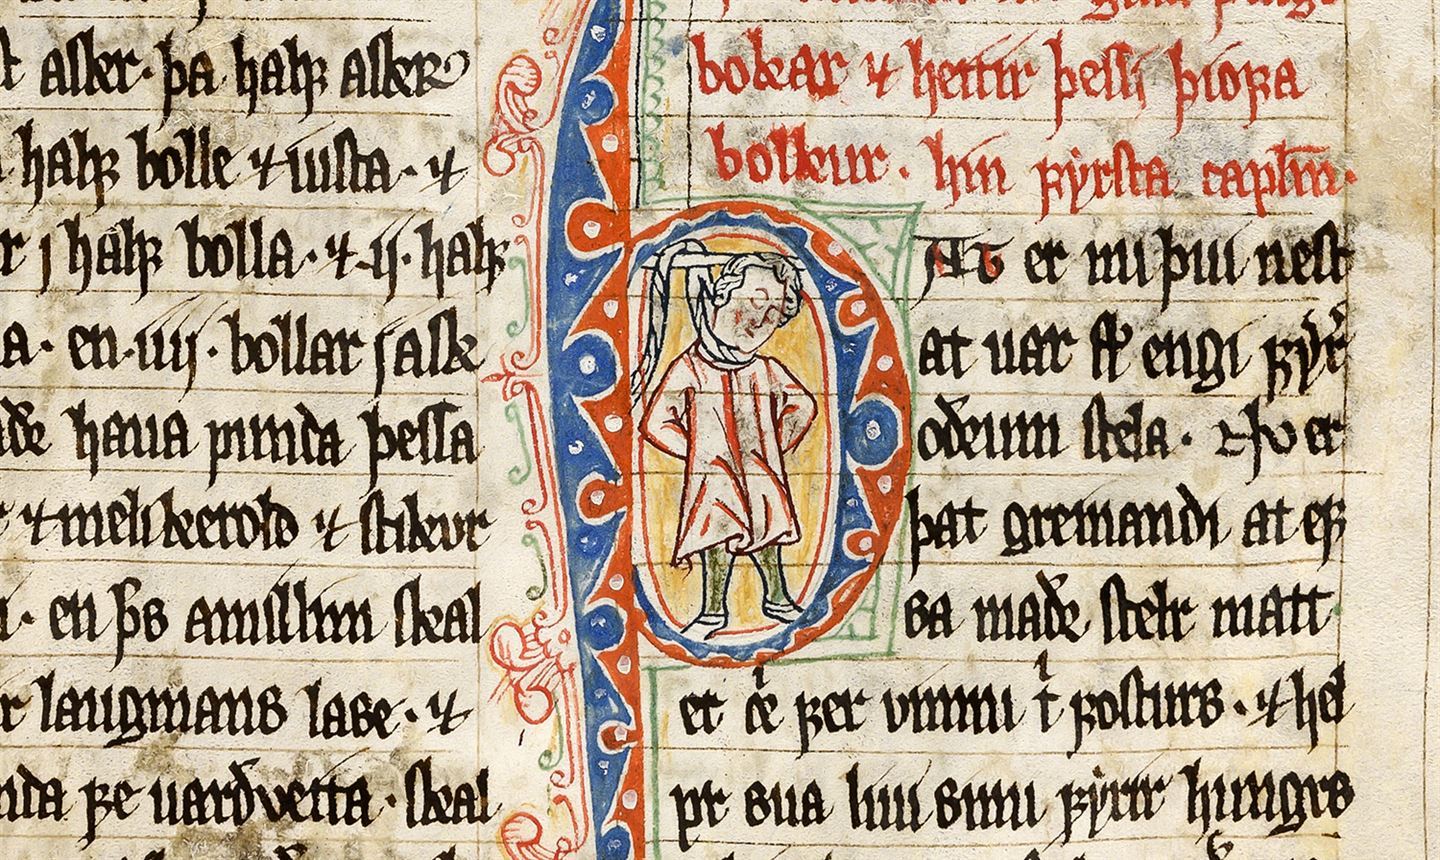 aſkr. þa halꝼ aſkꝛ
halꝼ bolle ⁊ iuſta. ⁊
r j halꝼ bolla. ⁊ ij. halꝼ
a. en iiij. bollar ſ aſk
haua punda þeſſa
⁊ melikerold ⁊ ſtikur
en þſ amſlhm ſkal
r laugmanſ laſe. ⁊
nda ꝼe uarðvetta. ſkal
bokar ⁊ heitir þeſſi þioꝼa
bolkur. hin ꝼyrſta capłm.
ÞAT er nu þui neſt
at uar ſk engi ꝼyr
oðrum ſtela. Nv er
þat gremandi at eꝼ
ſa maðr ſtelr matt
er ꝼer vnnit ꝼoſturs. ⁊ hel
pr sua liui sinu ꝼyrir hungrs